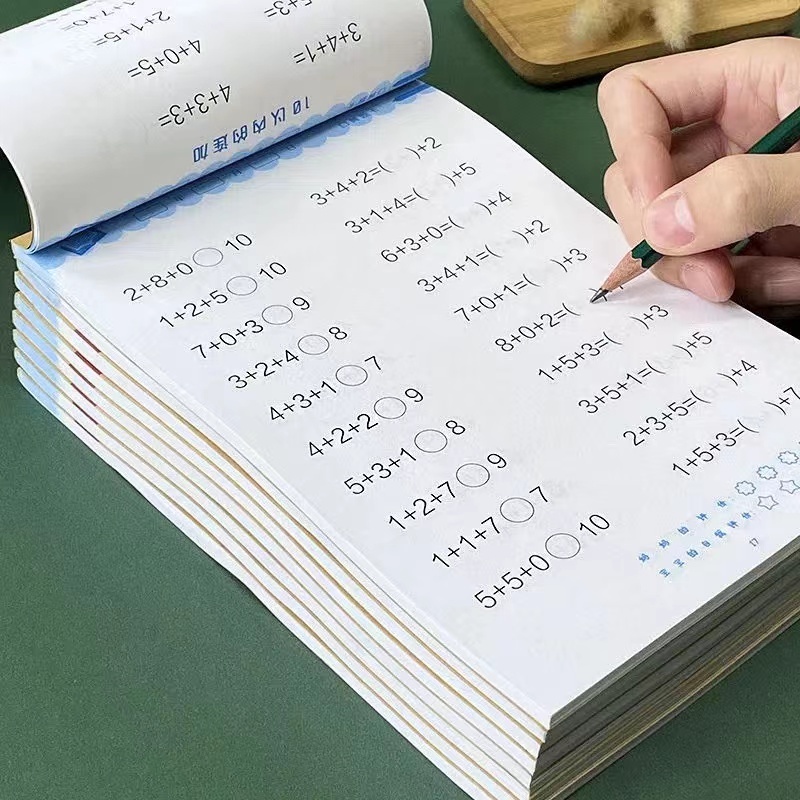 10以内的连加
4+3+3=
4+0+5=
2+1+5=
1+7+0=
3+4+1=
2+8+0○10
1+2+5○10
7+0+3○9
3+2+4○8
4+3+1○7
4+2+2○9
5+3+1○8
1+2+7○9
1+1+7○7
5+5+0○10
3+4+2=( )+2
3+1+4=( )+5
6+3+0=( )+4
3+4+1=( )+2
7+0+1=( )+3
8+0+2=(
1+5+3=( )+3
3+5+1=( )+5
2+3+5=( )+4
1+5+3=( )+7
妈妈的评价:
宝宝的自我评价:
17